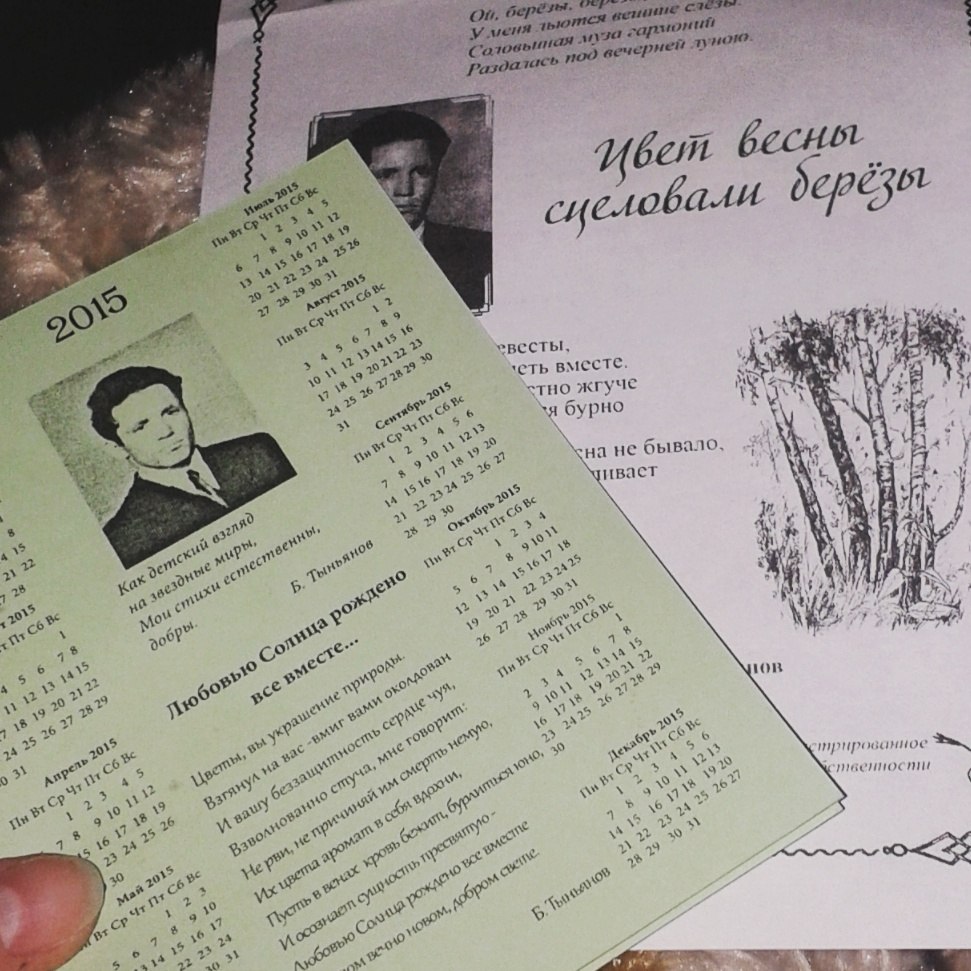 Ой, берёзы,
У меня льются вешние слёзы.
Соловьиная муза гармоний
Раздалась под вечерней луною.
Цвет весны
сцеловали берёзы
евесты,
еть вместе.
стно жгуче
я бурно
сна не бывало,
ливает
нов
стрированное
бственности
2015
Как детский взгляд
на звездные миры,
Мои стихи естественны,
добры.
Б. Тыньянов
Любовью Солнца рождено
все вместе...
Цветы, вы украшение природы.
Взгянул на вас -вмиг вами околдован
И вашу беззащитность сердце чуя,
Взволнованно стуча, мне говорит:
Не рви, не причиняй им смерть немую,
Их цвета аромат в себя вдохни,
Пусть в венах кровь бежит, бурлиться юно,
И осознает сущность пресвятую -
Любовью Солнца рождено все вместе
ом вечно новом, добром свете
Б. Тыньянов
8
14 15
21 22
27 28
т 2015
т Пт Сб Вс
1
4 5 6 7 8
11 12 13 14 15
17 18 19 20 21 22
24 25 26 27 28 29
30 31
Апрель 2015
Пн Вт Ср Чт Пт Сб Вс
1 2 3 4 5
7 8 9 10 11 12
15 16 17 18 19
23 24 25 26
30
Май 2015
Вт Ср Чт Пт Сб Вс
1 2 3
7 8 9 10
13 14 15 16 17
20 21 22 23 24
30 31
Июль 2015
Пн Вт Ср Чт Пт Сб Вс
1 2 3 4 5
6 7 8 9 10 11 12
13 14 15 16 17 18 19
20 21 22 23 24 25 26
27 28 29 30 31
Август 2015
Пн Вт Ср Чт Пт Сб Вс
1 2
3 4 5 6 7 8 9
10 11 12 13 14 15 16
17 18 19 20 21 22 23
24 25 26 27 28 29 30
31
Сентябрь 2015
Пн Вт Ср Чт Пт Сб Вс
1 2 3 4 5 6
7 8 9 10 11 12 13
14 15 16 17 18 19 20
21 22 23 24 25 26 27
28 29 30
Октябрь 2015
Пн Вт Ср Чт Пт Сб Вс
1 2 3 4
5 6 7 8 9 10 11
12 13 14 15 16 17 18
19 20 21 22 23 24 25
26 27 28 29 30 31
Ноябрь 2015
Пн Вт Ср Чт Пт Сб Вс
1
2 3 4 5 6 7 8
9 10 11 12 13 14 15
16 17 18 19 20 21 22
23 24 25 26 27 28 29
30
Декабрь 2015
Пн Вт Ср Чт Пт Сб Вс
1 2 3 4 5 6
7 8 9 10 11 12 13
14 15 16 17 18 19 20
21 22 23 24 25 26 27
28 29 30 31